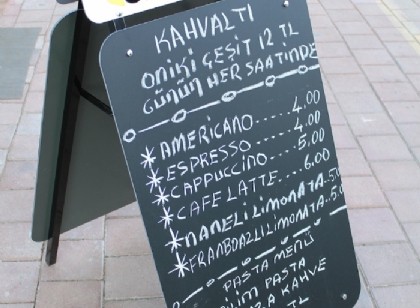 KAHVALTI
ONiKi ÇEŞİT 12 TL
GÜNÜN HER SAATİNDE
* AMERICANO.... 4.00
* ESPRESSO..... 4.00
* CAPPUCCINO... 5.00
* CAFE LATTE.... 6.00
* NANELi LiMONATA..5.0
* FRAMBOAZLI LiMONATA..5.0
PASTA MENÜ
DİLİM PASTA
KAHVE
TL